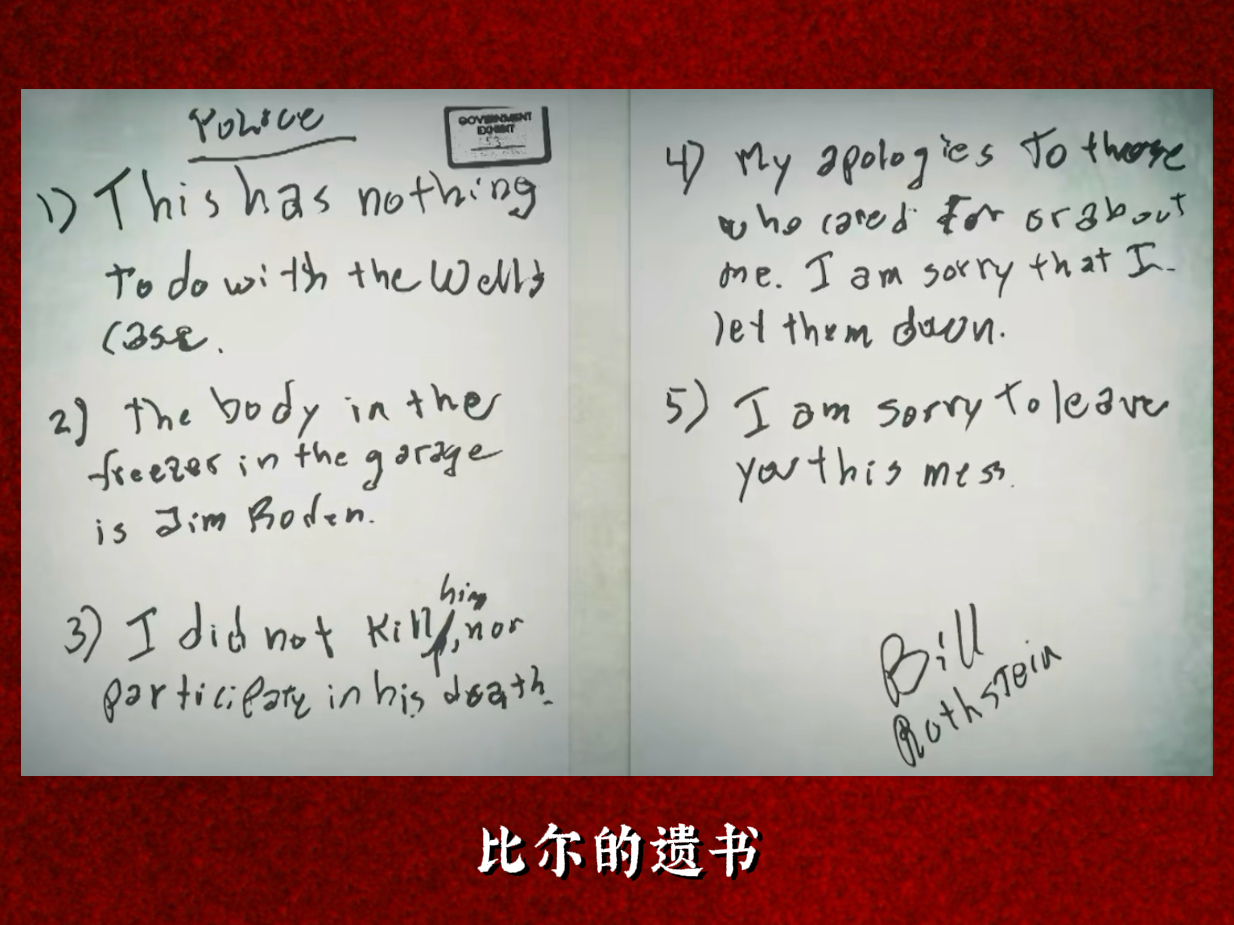 Police
GOVERNMENT
EXHIBIT
53
1) This has nothing
to do with the Wells
case.
2) the body in the
freezer in the garage
is Jim Roden.
him
3) I did not Kill, nor
participate in his death.
4) My apologies to those
who cared for or about
me. I am sorry that I
let them down.
5) I am sorry to leave
you this mess.
Bill
Rothstein
比尔的遗书